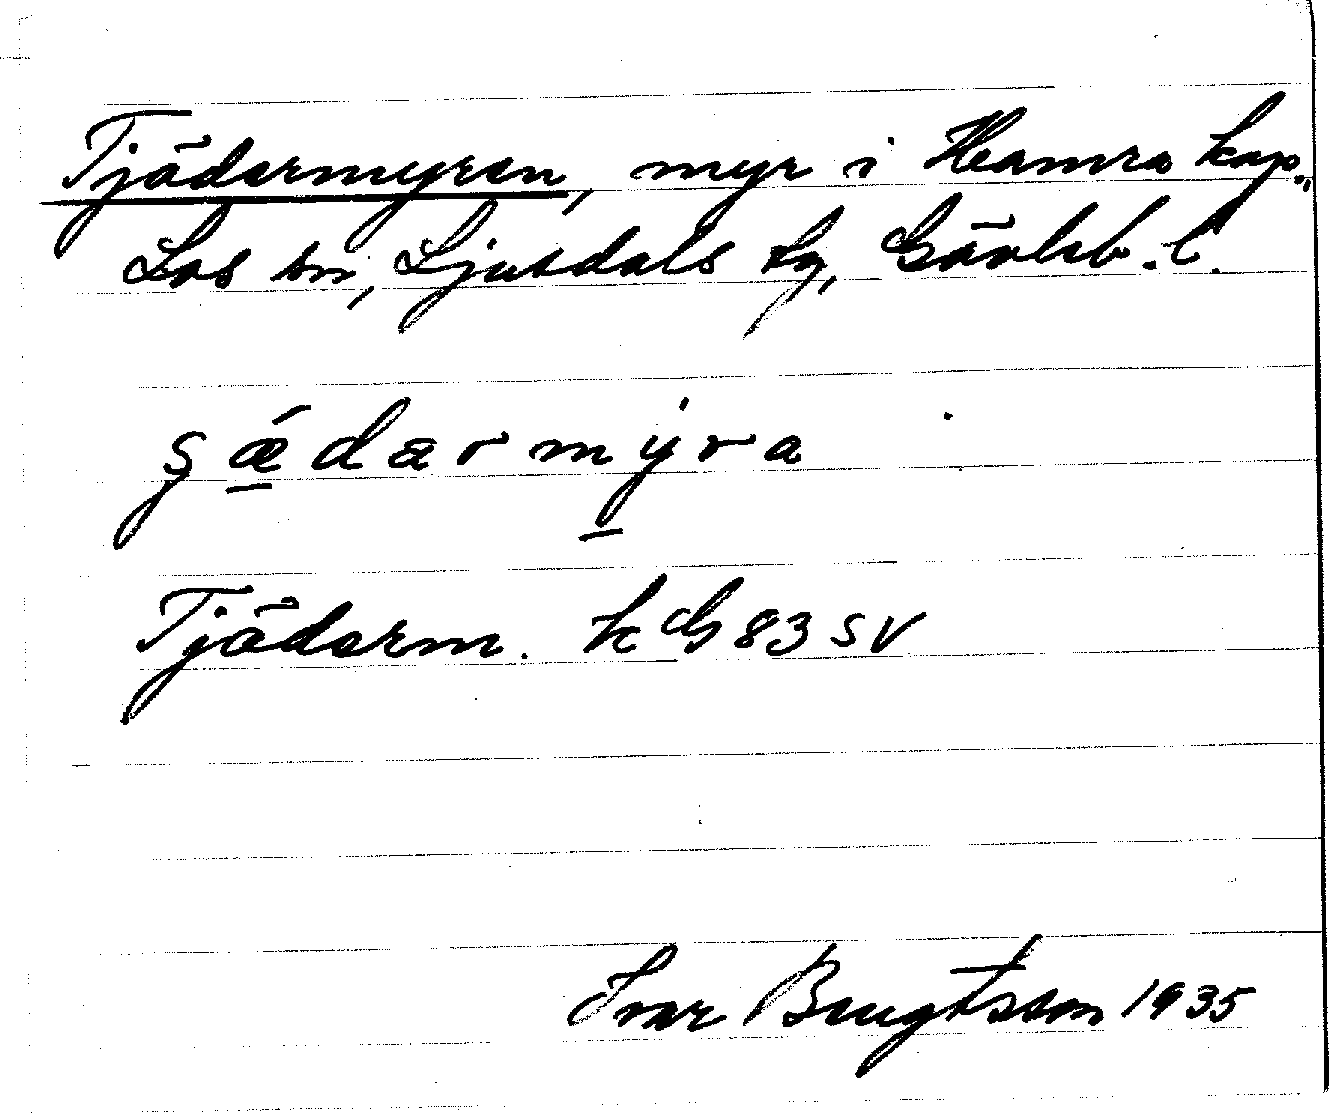 Tjädermyren, myr i Hamra kap.,
Los sn, Ljusdals tg, Gävleb. l.
ʂǽdærmýra
Tjäderm. k G 83 SV
Ivar Bengtsson 1935